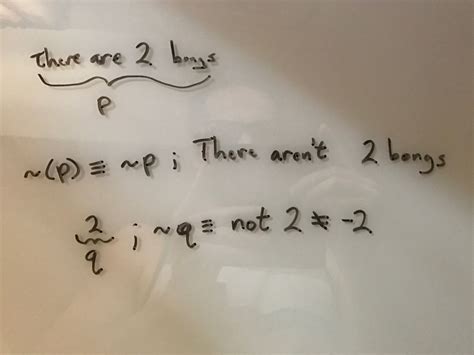 There are 2 bongs
P
~(p) ≡ ~p ; There aren't 2 bongs
2 ; ~q ≡ not 2 ≠ -2
q